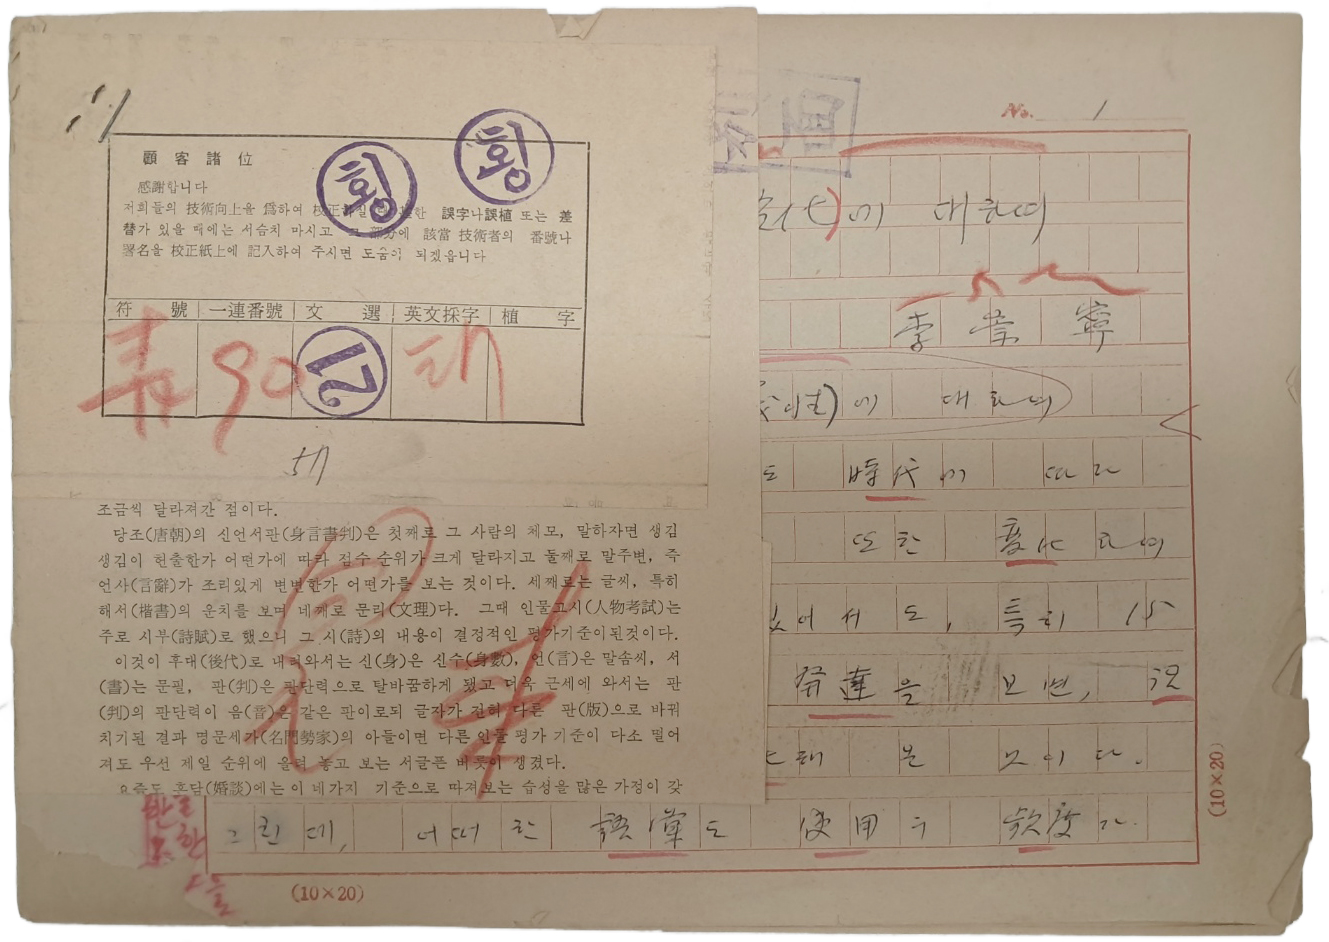 顧客諸位
感謝합니다
저희들의 技術向上을 爲하여 校正 誤字나 誤植 또는 差
替가 있을 때에는 서슴치 마시고 그 部分에 該當 技術者의 番號나
署名을 校正紙上에 記入하여 주시면 도움이 되겠읍니다
횡
횡
符號 一連番號 文選 英文採字 植字
90 21
조금씩 달라져간 점이다.
당조(唐朝)의 신언서판(身言書判)은 첫째로 그 사람의 체모, 말하자면 생김
생김이 헌출한가 어떤가에 따라 점수 순위가 크게 달라지고 둘째로 말주변, 즉
언사(言辭)가 조리있게 변변한가 어떤가를 보는 것이다. 세째로는 글씨, 특히
해서(楷書)의 운치를 보며 네째로 문리(文理)다. 그때 인물고시(人物考試)는
주로 시부(詩賦)로 했으니 그 시(詩)의 내용이 결정적인 평가기준이된것이다.
이것이 후대(後代)로 내려와서는 신(身)은 신수(身數), 언(言)은 말솜씨, 서
(書)는 문필, 판(判)은 판단력으로 탈바꿈하게 됐고 더욱 근세에 와서는 판
(判)의 판단력이 음(音)은 같은 판이로되 글자가 전혀 다른 판(版)으로 바꿔
치기된 결과 명문세가(名門勢家)의 아들이면 다른 인물 평가 기준이 다소 떨어
져도 우선 제일 순위에 올려 놓고 보는 서글픈 비롯이 생겼다.
요즘도 혼담(婚談)에는 이 네가지 기준으로 따져보는 습성을 많은 가정이 갖
No. 1
에 대하여
李崇寧
에 대하여
時代에 따라
또한 變化하여
있어서도, 특히 15
発達을 보면,
은 보이다.
그런데, 어떠한 語彙도 使用의 頻度가
(10×20)
(10×20)